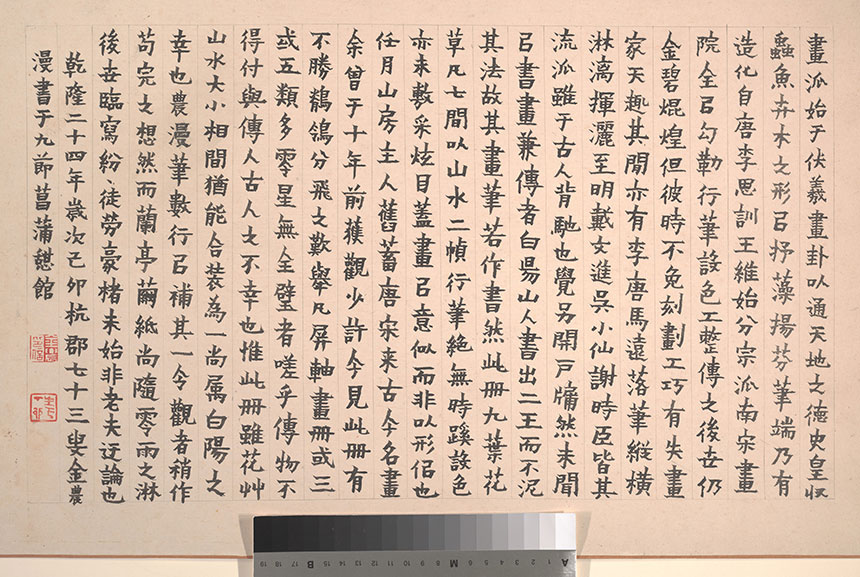 畫派始于伏羲畫卦以通天地之德史皇收
蟲魚卉木之形㠯抒藻揚芬筆端乃有
造化自唐李思訓王維始分宗派南宋畫
院全㠯勾勒行筆設色工整傳之後世仍
金碧焜煌但彼時不免刻劃工巧有失畫
家天趣其閒亦有李唐馬遠落筆縱橫
淋漓揮灑至明戴文進吳小仙謝時臣皆其
流派雖于古人背馳也覺另開戶牖然未聞
㠯書畫兼傳者白昜山人書出二王而不泥
其法故其畫筆若作書然此冊九葉花
草凡七閒以山水二幀行筆絕無時蹊設色
亦未敷采炫目蓋畫㠯意似而非以形侣也
任月山房主人舊蓄唐宋来古今名畫
余曾于十年前獲觀少許今見此冊有
不勝鶺鴒分飛之歎舉凡屏軸畫冊或三
或五類多零星無全璧者嗟乎傳物不
得付與傳人古人之不幸也惟此冊雖花艸
山水大小相閒猶能合裝為一尚屬白陽之
幸也農漫筆數行㠯補其一令觀者稍作
苟完之想然而蘭亭繭紙尚隨零雨之淋
後世臨寫紛〻徒勞豪楮未始非老夫迂論也
乾隆二十四年歲次己卯杭郡七十三叟金農
漫書于九節菖蒲憇館
A
M
B
1 2 3 4 5 6 7 8 9 10 11 12 13 14 15 16 17 18 19